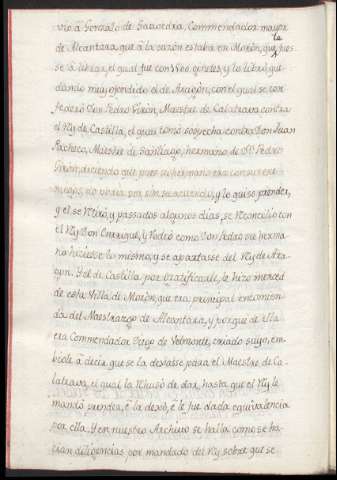 vio à Gonzalo de Saavedra, Commendador mayor
de Alcantara, que à la sazón estaba en Morón, que la fues
se à librar, el qual fue con 600. ginetes, y la libró, que
dando muy ofendido el de Aragón, con el qual se con
federó Don Pedro Girón, Maestre de Calatrava contra
el Rey de Castilla, el qual tomó sospecha contra Don Juan
Pacheco, Maestre de Santiago, hermano de Dn Pedro
Girón, diciendo que pues su hermano era con su ene
migo, no podia ser sin su acuerdo, y lo quiso prender,
y el se retiró, y passados algunos dias, se reconcilió con
el Rey Don Enrique, y redró como Don Pedro su herma
no hiciesse lo mismo, y se apartasse del Rey de Ara
gon. Y el de Castilla por gratificarle, le hizo merced
de esta Villa de Morón, que era principal encomien
da del Maestrazgo de Alcantara, y porque de ella
era Commendador Diego de Velmonte, criado suyo, em
biole à decir que se la dexasse para el Maestre de Ca
latrava, el qual la rehusó de dar, hasta que el Rey le
mandó prender, è la dexó, è le fue dada equivalencia
por ella. Y en nuestro Archivo se halla como se ha
cian diligencias por mandado del Rey sobre que se